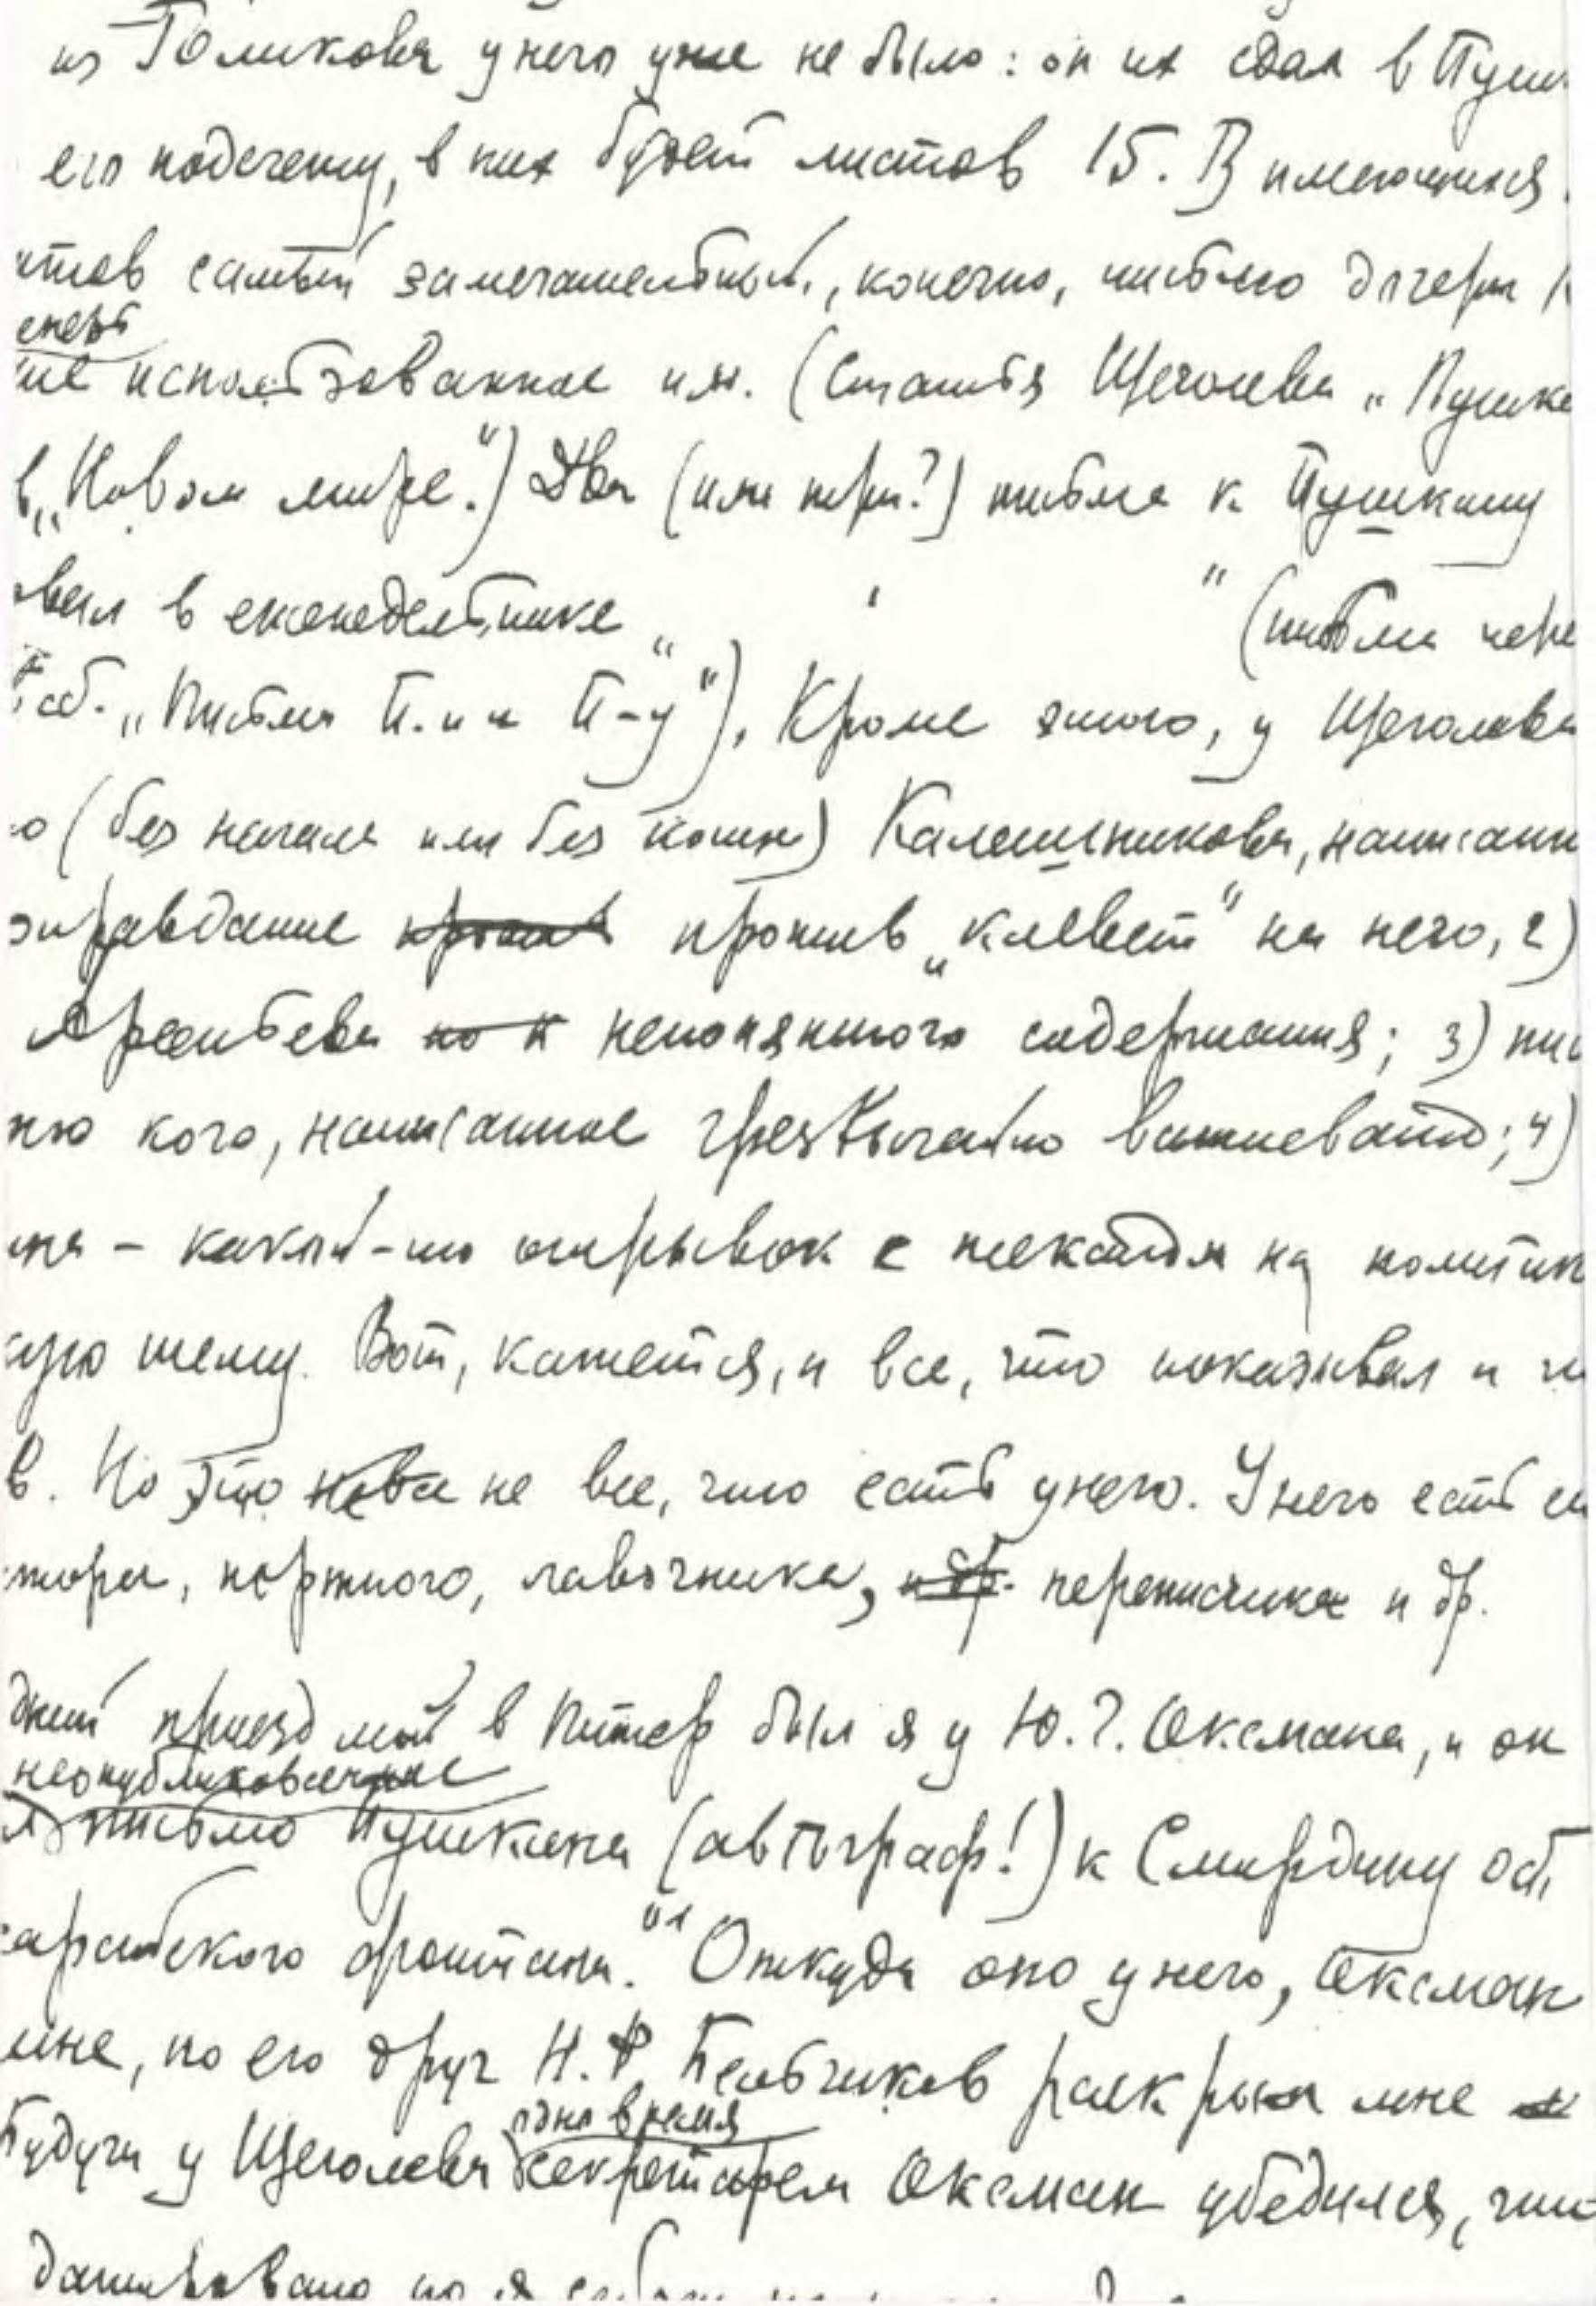 из Голикова у него уже не было: он их сдал в Пуш
его подсчету, в них будет листов 15. В имеющихся
нтов самый замечательный, конечно, письмо дочери К
не использованное им. (Статья Щеголева „Пушки
в „Новом мире".) Два (или три?) письма к Пушкину
вал в еженедельнике „ " (письма чере
об. „Письма П. и к П-у"). Кроме этого, у Щеголева
о (без начала или без конца) Калашникова, написанн
оправдание против „клевет" на него, 2)
Арсеньева непонятного содержания; 3) пис
ню кого, написанное чрезвычайно витиевато; 4)
на – какой-то отрывок с на политич
кую тему. Вот, кажется, и все, что показывал и чи
в. Но это не все, что есть у него. У него есть
тора, портного, лавочника, и др. переписчика и др.
дний приезд мой в Питер был я у Ю. Г. Оксмана, и он
неопубликованное
л письмо Пушкина (автограф!) к Смирдину об
сарайского фонтана." Откуда оно у него, Оксман
мне, но его друг Н. Ф. Бельчиков раскрыл мне
Будучи у Щеголева секретарем Оксман убедился, что
одно время